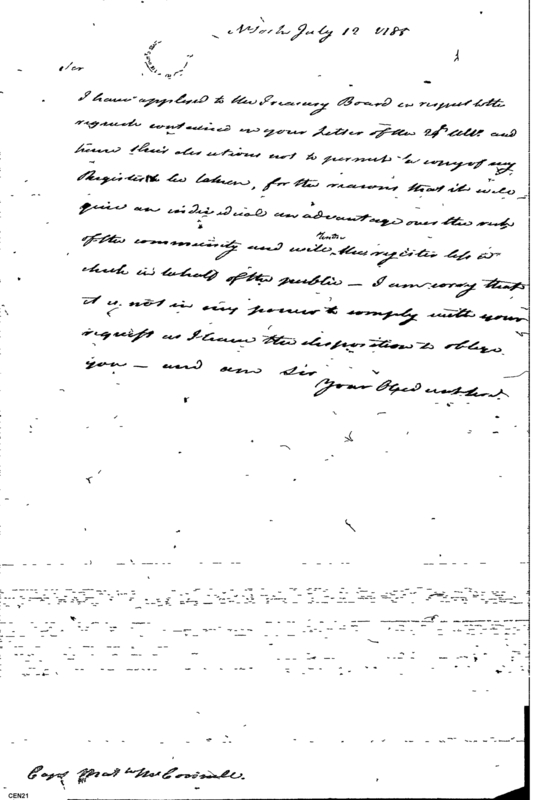 N York July 12 1788
Sir
I have applied to the Treasury Board in respect to the
request contained in your Letter of the 24th Ulto. and
have their directions not to permit a copy of my
Register to be taken, for the reasons that it will
give an individual an advantage over the rest
of the community and will render this register less a
check in behalf of the public — I am sorry that
it is not in my power to comply with your
request as I have the disposition to oblige
you — and am Sir
Your Obed
Capt
CEN21